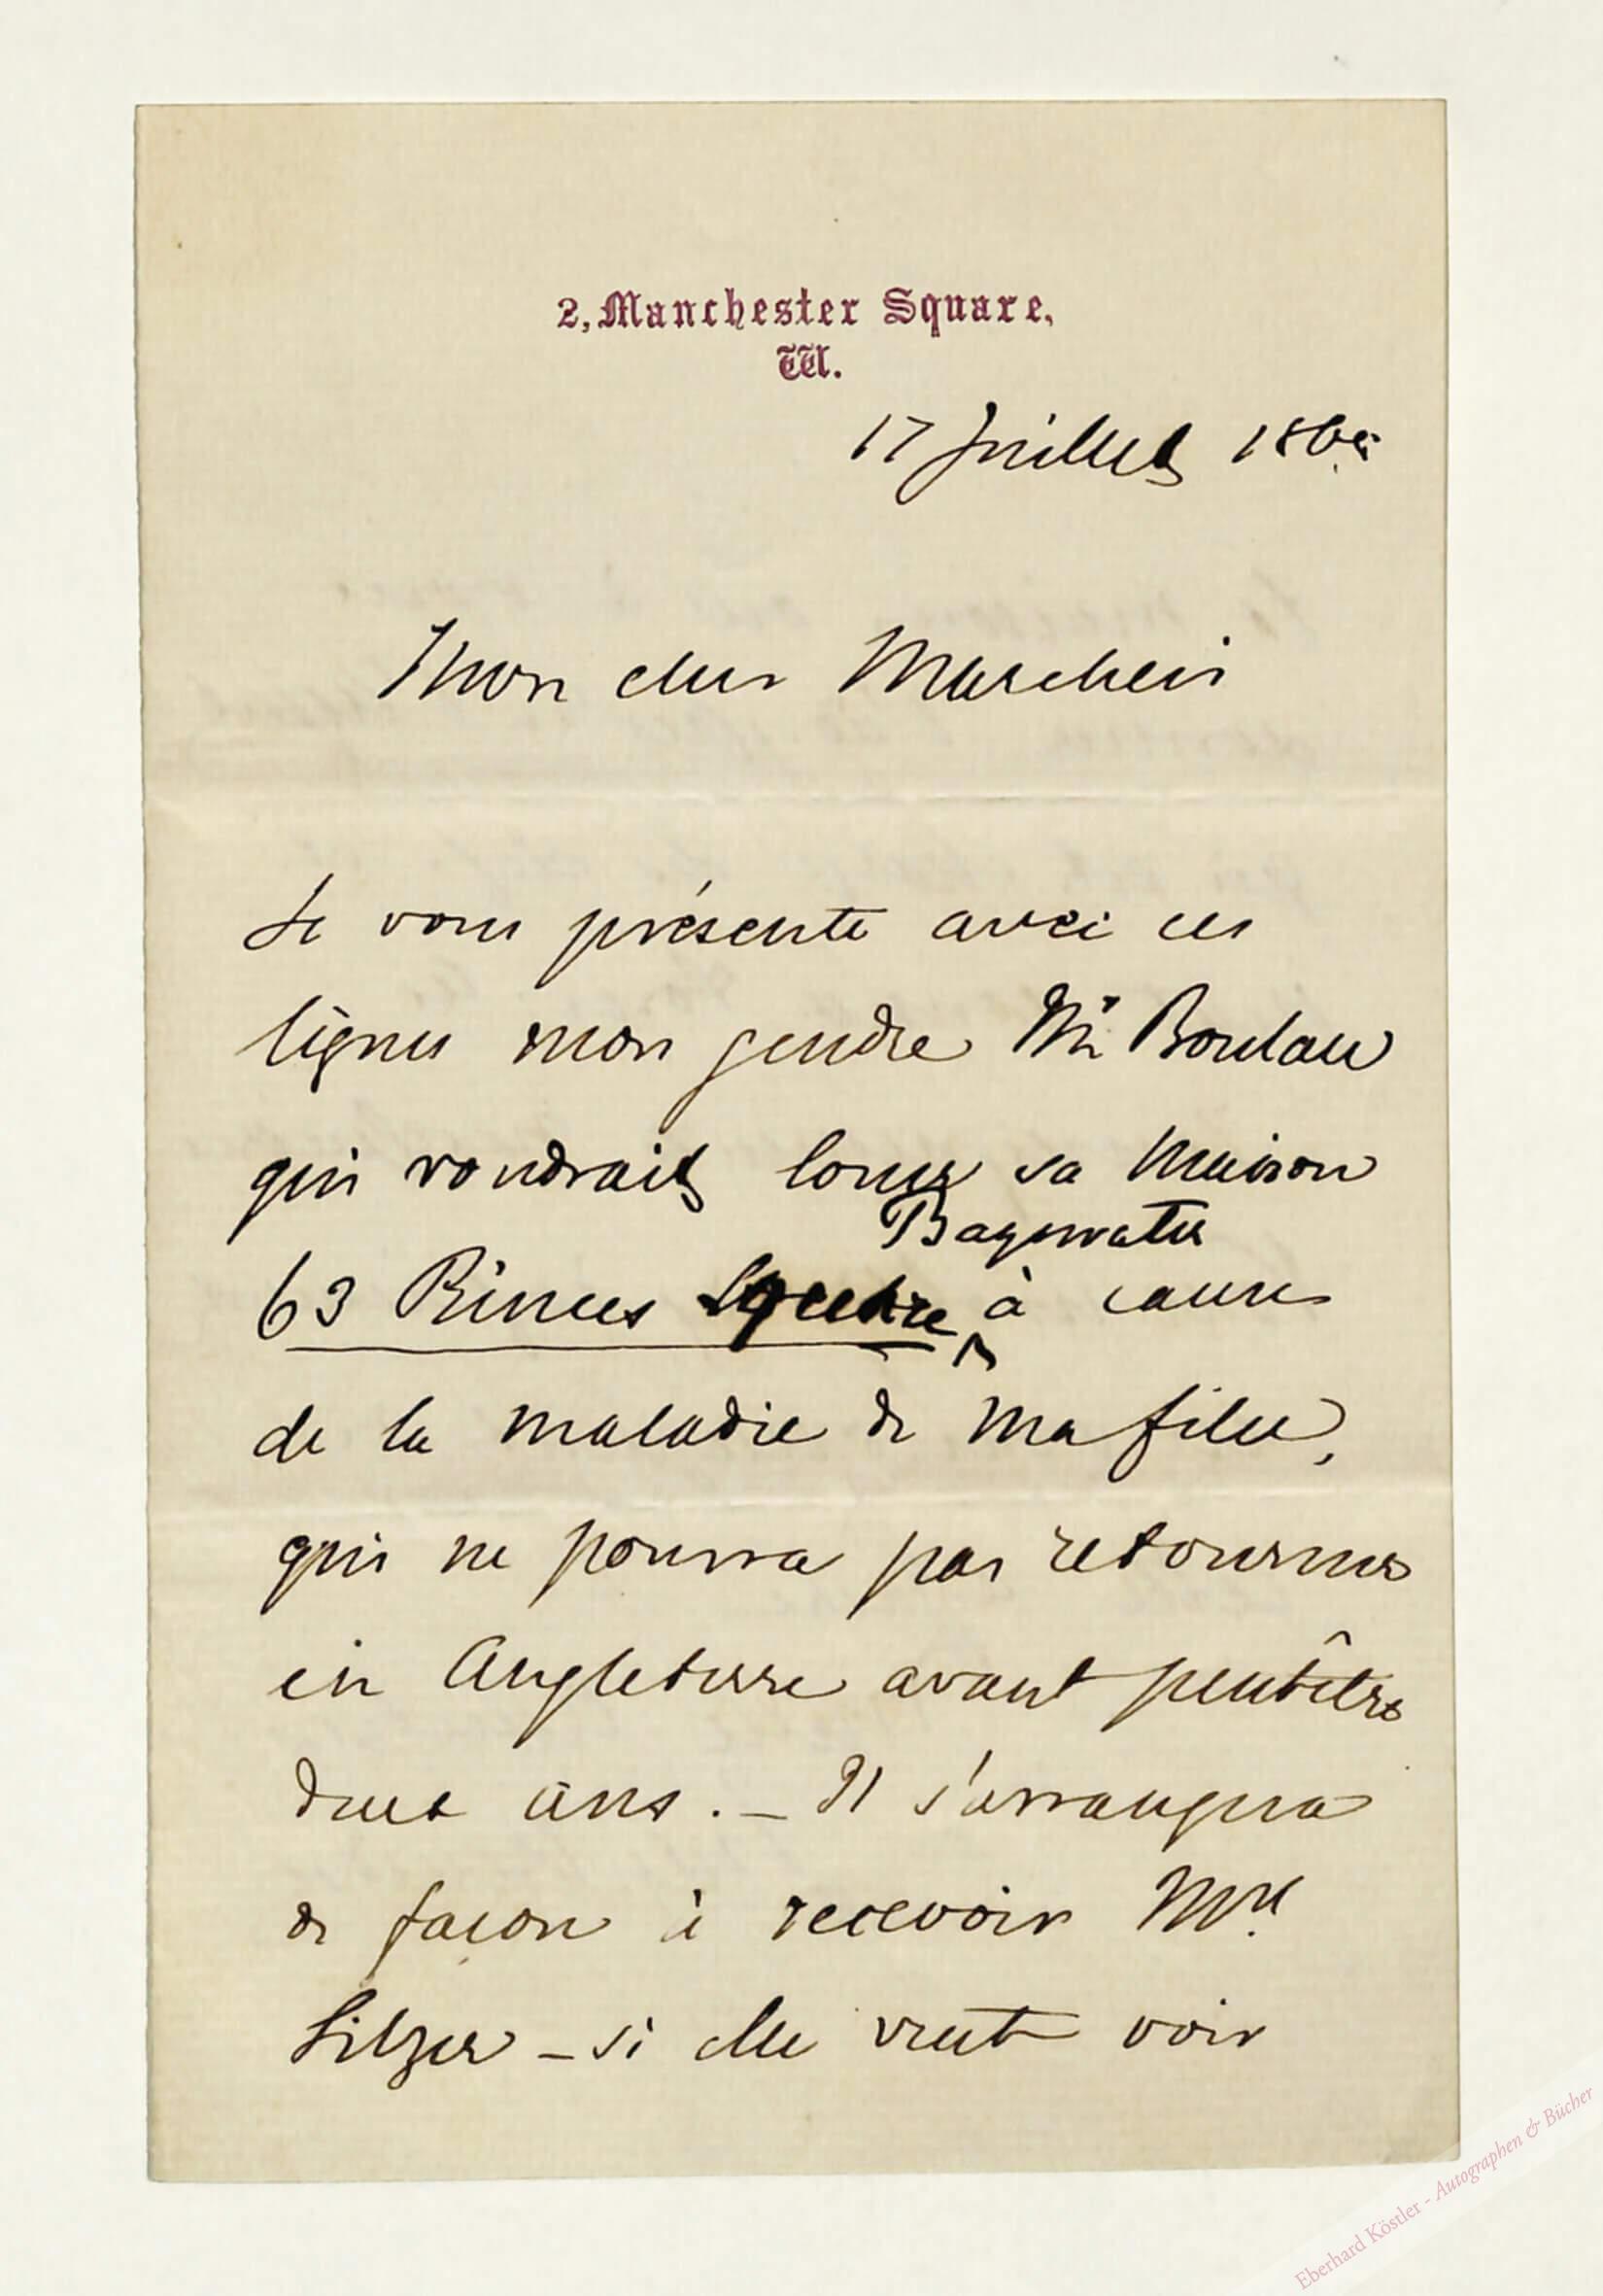 2, Manchester Square,
W.
17 Juillet
Mon cher
Je vous présente avec ces
lignes mon gendre Mr
qui voudrait louer sa maison
Bayswater
63 Princes Square à cause
de la maladie de ma fille,
qui ne pourra pas retourner
en Angleterre avant peutêtre
deux ans. – Il s'arrangera
de façon à recevoir
– si elle veut voir
Eberhard Köstler - Autographen & Bücher